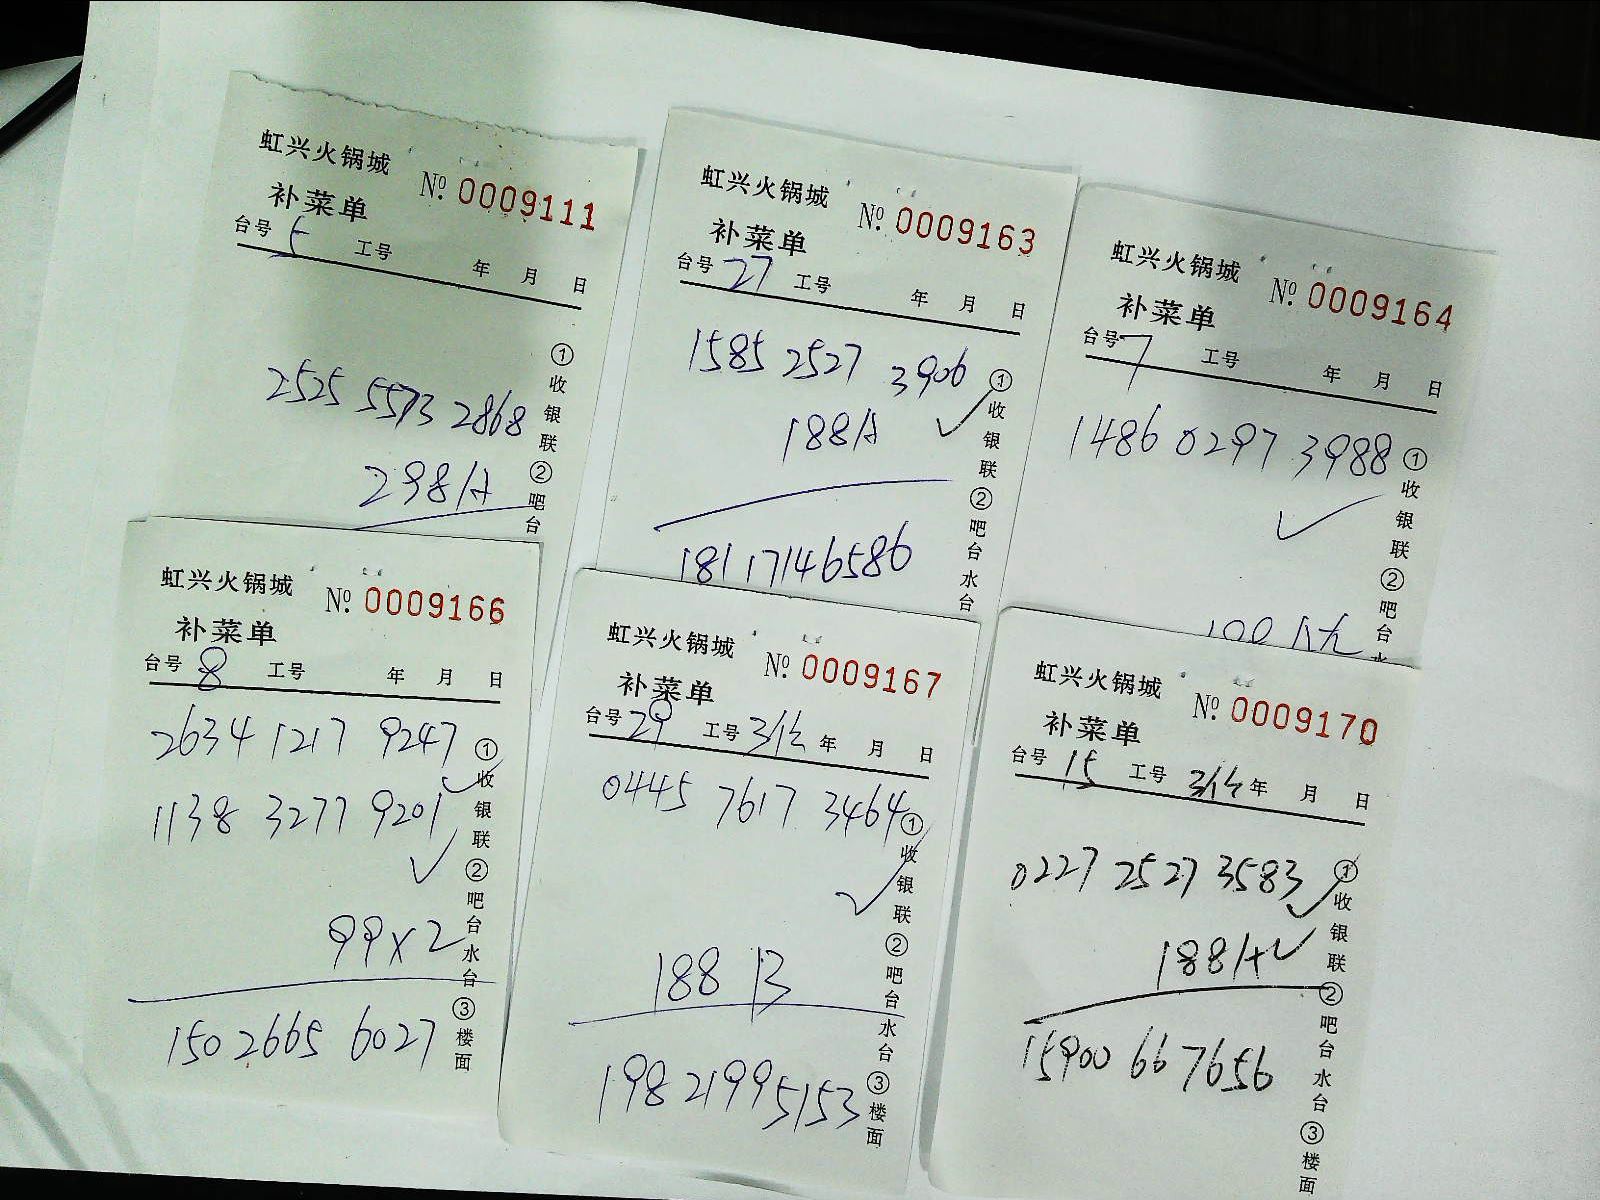 虹兴火锅城 № 0009111
补菜单
台号 5 工号 年 月 日
2525 5573 2868
298A
①收银联 ②吧台
虹兴火锅城 № 0009163
补菜单
台号 27 工号 年 月 日
1585 2527 3906 ✓
188A
18117146586
①收银联 ②吧台水台
虹兴火锅城 № 0009164
补菜单
台号 7 工号 年 月 日
1486 0297 3988
✓
①收银联 ②吧台水
虹兴火锅城 № 0009166
补菜单
台号 8 工号 年 月 日
2634 1217 9247 ✓
1138 3277 9201 ✓
99×2
150 2665 6027
①收银联 ②吧台水台 ③楼面
虹兴火锅城 № 0009167
补菜单
台号 29 工号 年 月 日
0445 7617 3464
✓
188 B
198 2199 5153
①收银联 ②吧台水台 ③楼面
虹兴火锅城 № 0009170
补菜单
台号 15 工号 年 月 日
0227 2527 3583 ✓
188A ✓
15900 66 7656
①收银联 ②吧台水台 ③楼面